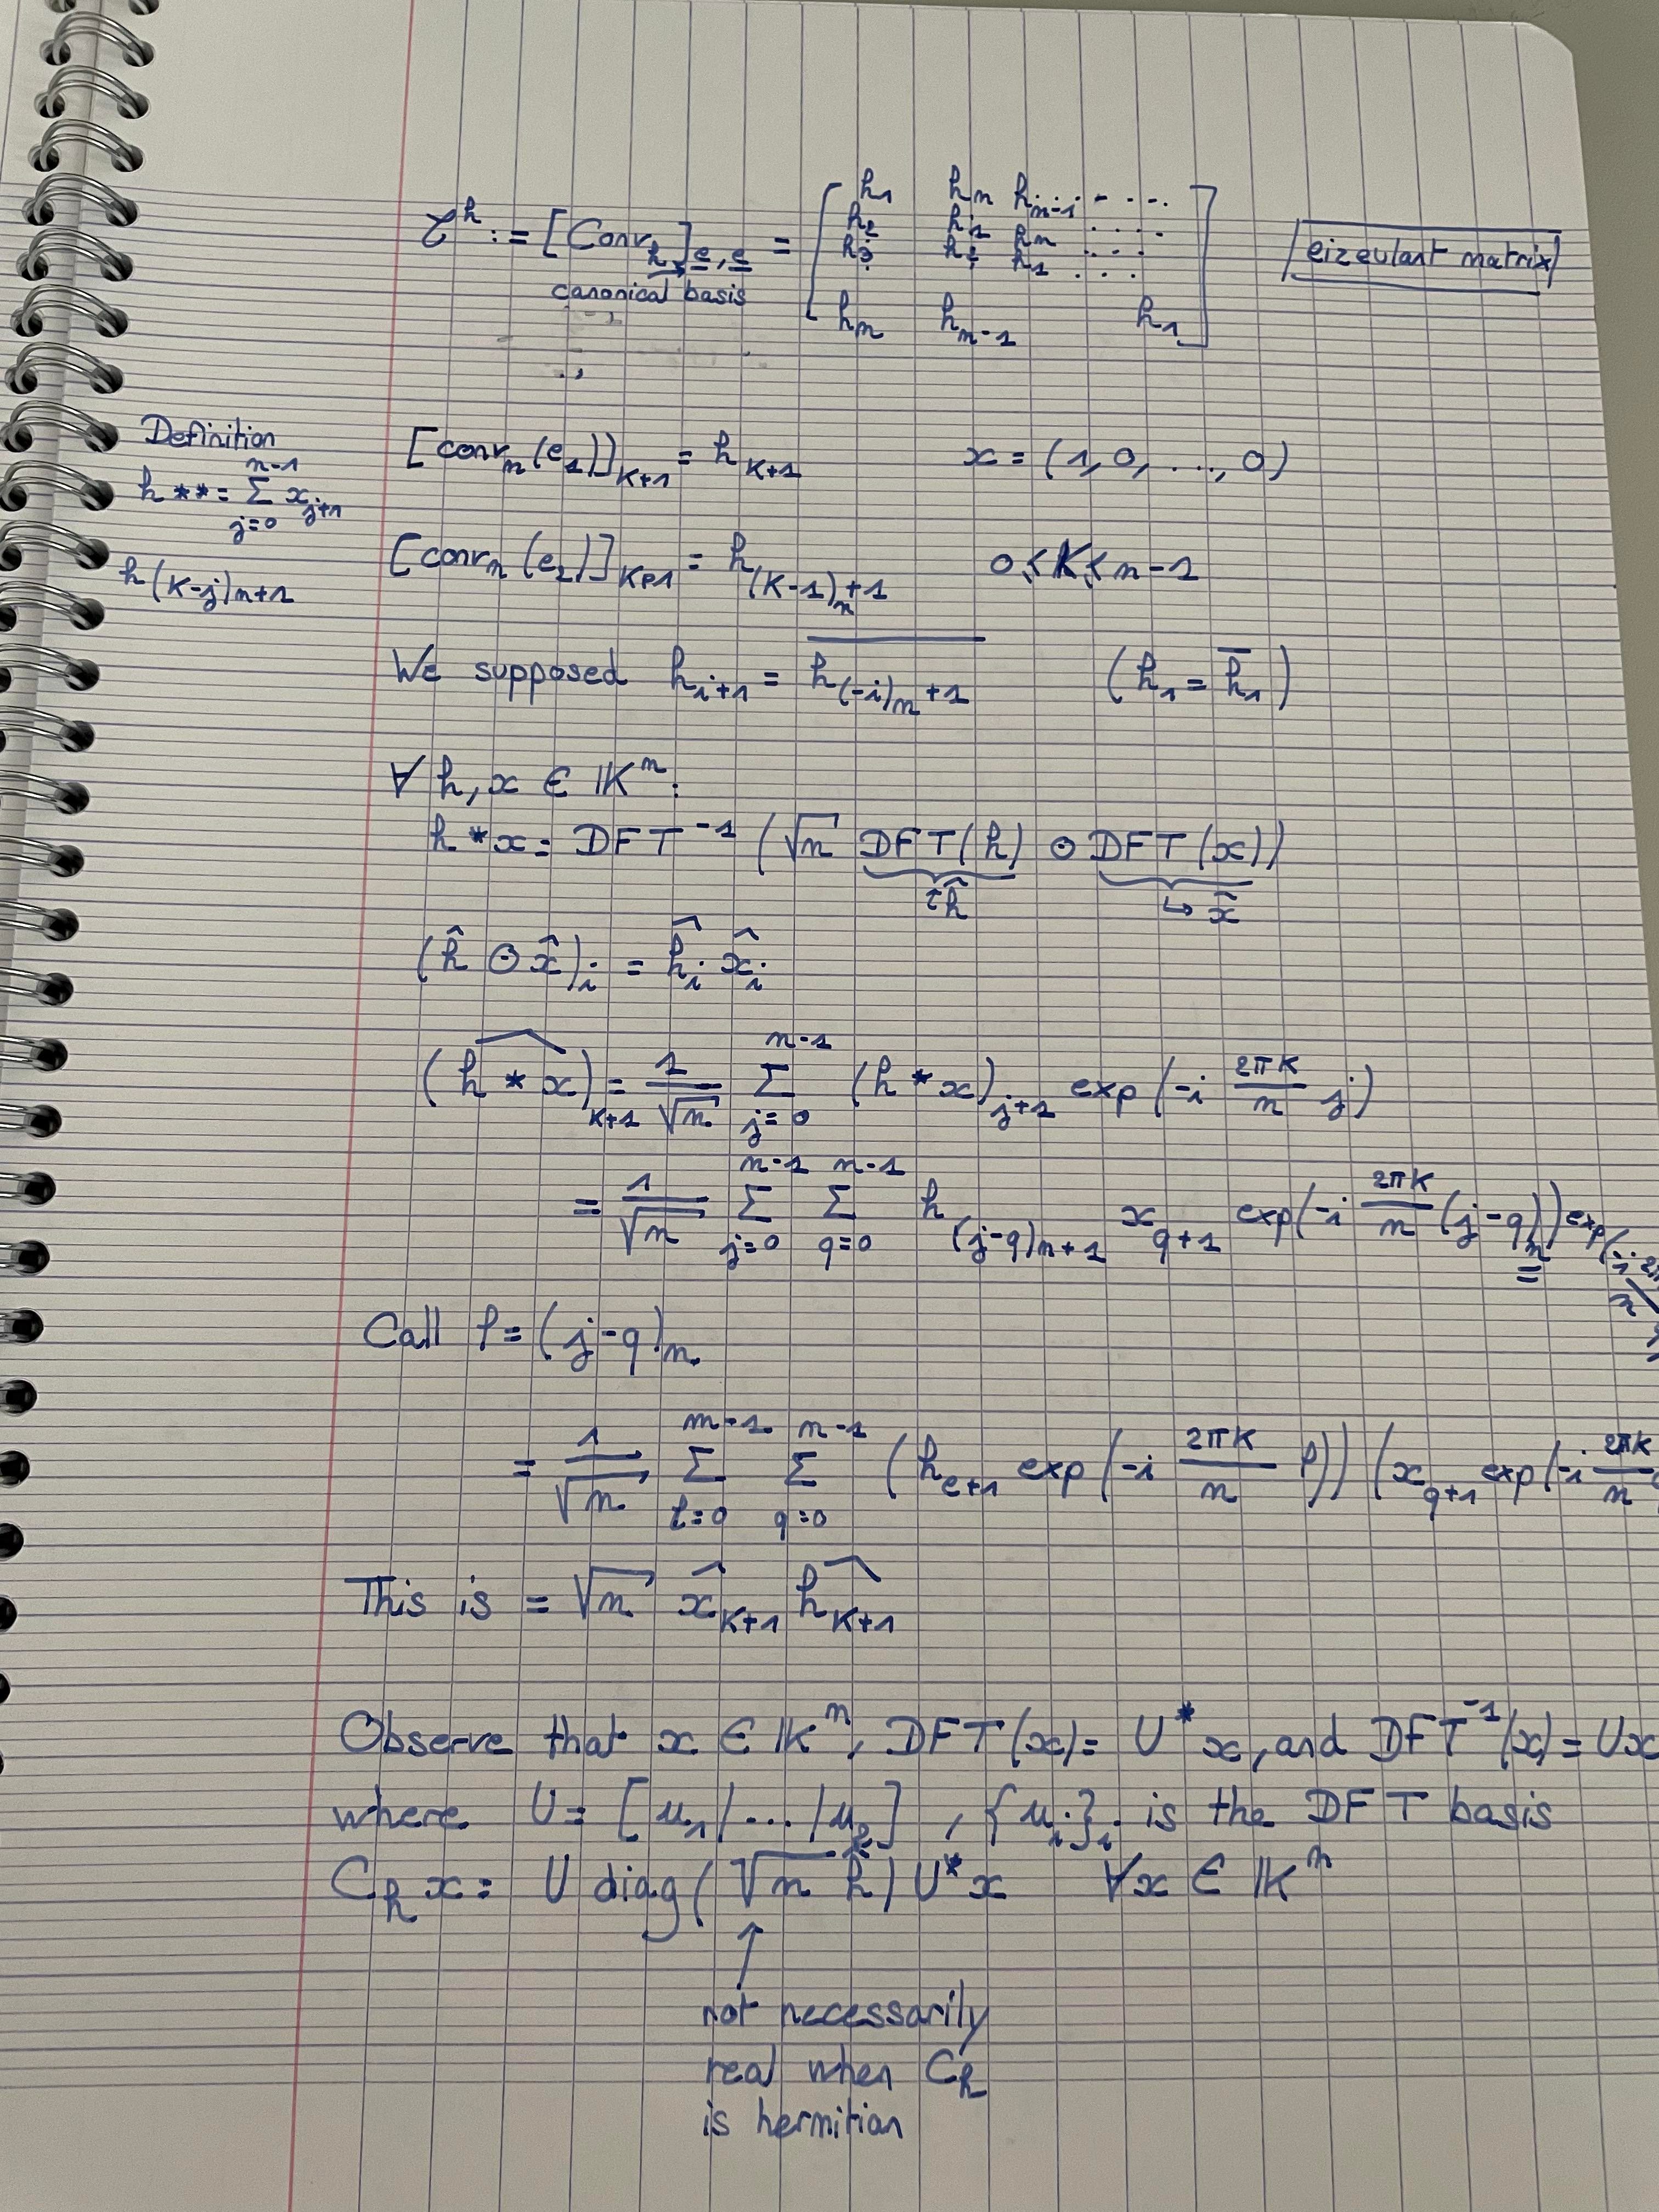 𝒞^h := [Conv_h]_{e,e} = [ h_1 h_n h_{n-1} ....
h_2 h_1 h_n ....
h_3 h_2 h_1 ...
h_n h_{n-1} h_1 ]
canonical basis
eizculant matrix
Definition
h ** = Σ_{j=0}^{n-1} x_{j+1}
h(K-j)n+1
[conv_n(e_1)]_{K+1} = h_{K+1} x = (1, 0, ..., 0)
[conv_n(e_2)]_{K+1} = h_{(K-1)_n+1} 0 ≤ K ≤ n-1
We supposed h_{i+1} = \overline{h_{(-i)_n+1}} (h_1 = \overline{h}_1)
∀ h, x ∈ IK^n :
h * x = DFT^{-1} (√n DFT(h) ⊙ DFT(x))
↑ ĥ ↳ x̂
(ĥ ⊙ x̂)_i = ĥ_i x̂_i
(\widehat{h * x})_{K+1} = 1/√n Σ_{j=0}^{n-1} (h * x)_{j+1} exp(-i 2πK/n j)
= 1/√n Σ_{j=0}^{n-1} Σ_{q=0}^{n-1} h_{(j-q)n+1} x_{q+1} exp(-i 2πK/n (j-q)_n) exp(-i 2π
Call l = (j-q)_n.
= 1/√n Σ_{l=0}^{n-1} Σ_{q=0}^{n-1} (h_{l+1} exp(-i 2πK/n l)) (x_{q+1} exp(-i 2πK/n
This is = √n x̂_{K+1} ĥ_{K+1}
Observe that x ∈ IK^n, DFT(x) = U* x, and DFT^{-1}(x) = Ux
where U = [u_1/.../u_n] , {u_i}_i is the DFT basis
C_h x = U diag(√n ĥ) U* x ∀x ∈ IK^n
↑
not necessarily
real when C_h
is hermitian